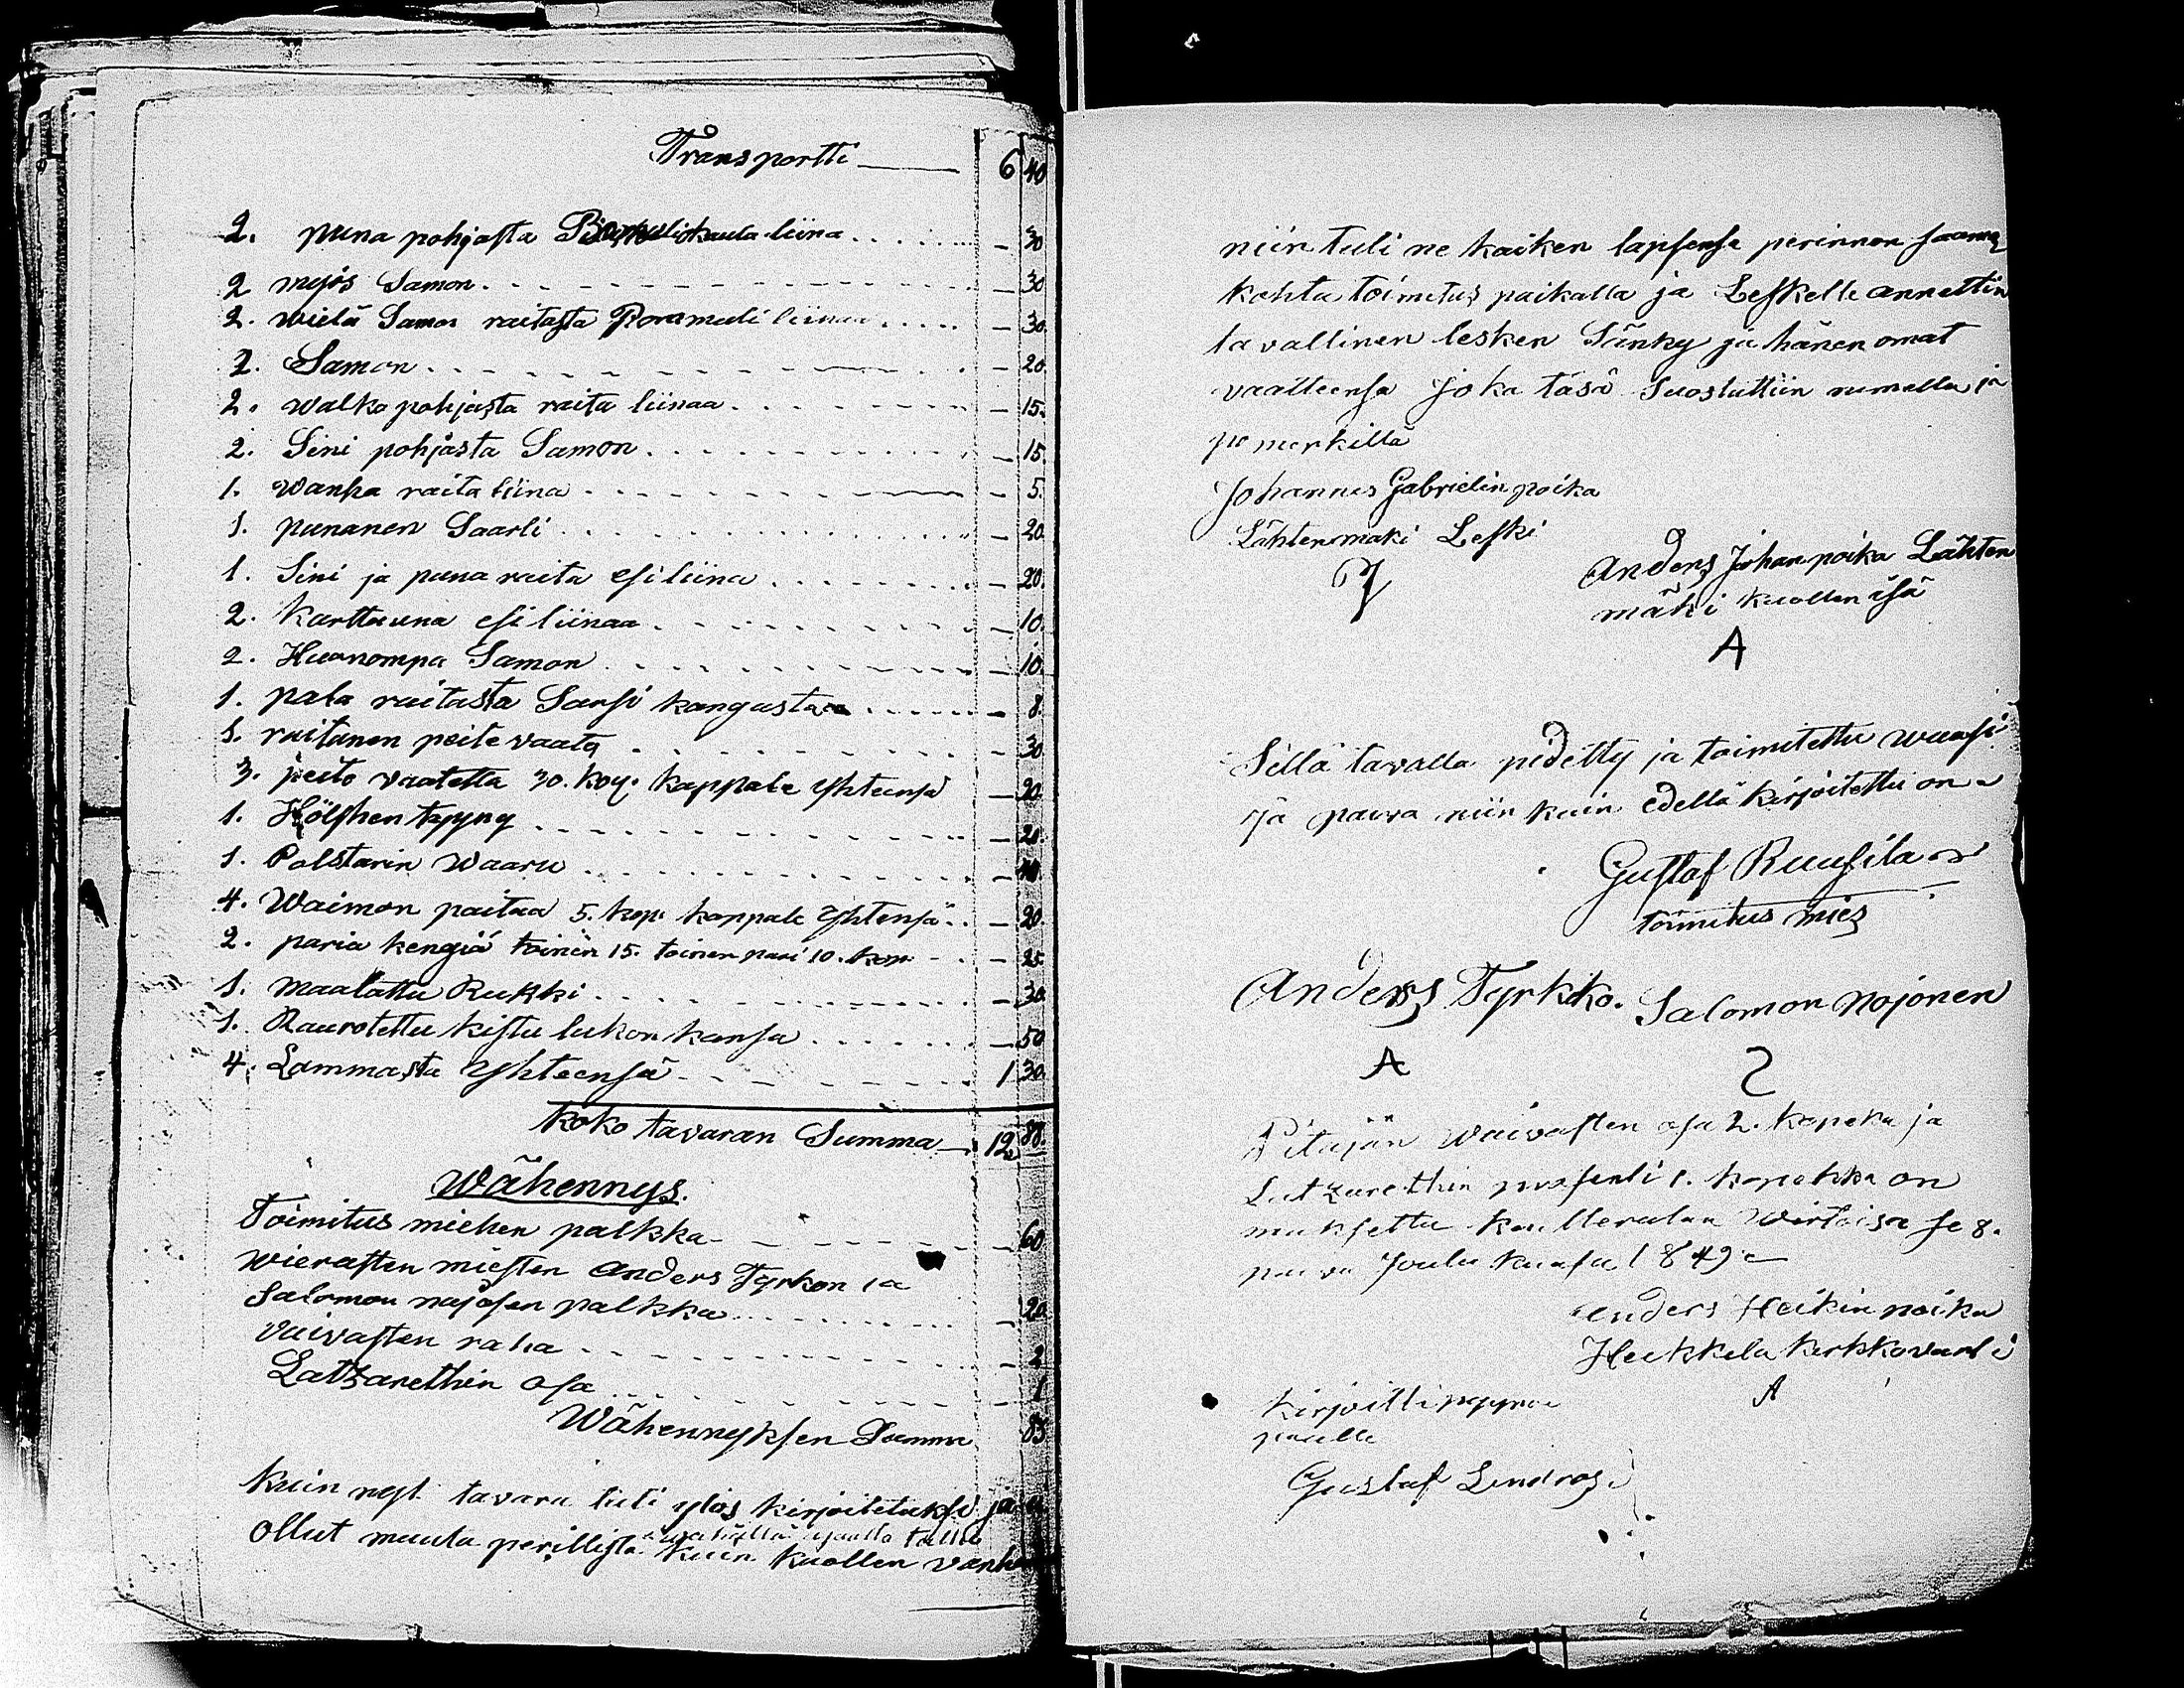 Transportti 6 40
2. puna pohjasta kaula liina - 30
2 myös Samon - 30
2. wielä Samon raitasta liinaa - 30.
2. Samon - 20.
2. walko pohjasta raita liinaa - 15.
2. Sini pohjasta Samon - 15.
1. wanha raita liina - 5.
1. punanen Saarli - 20.
1. Sini ja puna raita esiliina - 20.
2. Karttuuna esi liinaa - 10.
2. Huonompa Samon - 10.
1. pala raitasta Sarsi kangasta - 8.
1. raitanen peite vaate - 30
3. peito vaatetta 30. kop. kappale yhteensä - 20.
1. tyyny - 20.
1. Polstarin waaru - 40
4. Waimon paitaa 5. kop. kappale yhtensä - 20.
2. paria kengiä toinen 15. toinen pari 10. kop. - 25.
1. maalattu Rukki - 30.
1. Raurotettu kistu lukon kansa - 50
4. Lammasta yhteensä 1 30.
koko tavaran Summa 12 88.
Wähennys.
Toimitus miehen palkka - 60
wierasten miesten Anders Tyrkön ja
Salomon nojosen palkka - 20
vaivasten raha - 2
Latzarethin osa - 1
Wähennyksen Summa 83
Kuin nyt tavara tuli ylös kirjoitetuksi ja ei
ollut muuta perillistä kuin kuollen vanhem
niin tuli ne kaiken lapsensa perinnön saama
kohta toimitus paikalla ja Leskelle annettin
tavallinen lesken Sänky ja hänen omat
vaatteensa joka täsä Suostuttiin nimellä ja
pomerkillä
Johannes Gabrielin poika
Lähtenmäki Leski
Anders Johan poika Lähten
mäki kuollen isä
A
Sillä tavalla pidetty ja toimitettu wuosi
ja päivä niin kuin edellä kirjoitettu on
Gustaf Ruusila
toimitus mies
Anders Tyrkkö. Salomon Nojonen
A 2
Pitäjän waivasten osa 2. kopeka ja
Latzarethin prosenti 1. kopekka on
maksettu Wirtoisa se 8.
päivä Joulu kuusa 1849
Anders Heikin poika
Heikkilä kirkkovarti
A
kirjoitti pyynnö
päälle
Gustaf Lindros